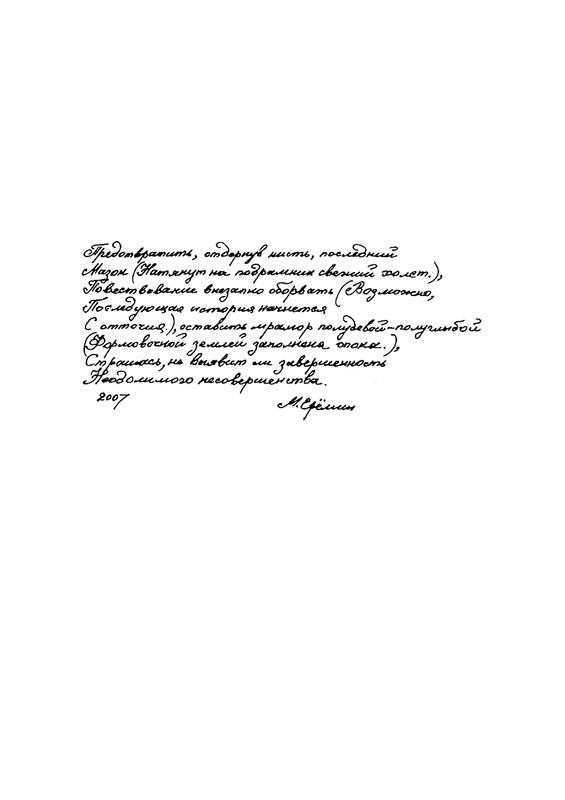 Предотвратить, отдернув кисть, последний
Мазок (Натянут на подрамник свежий холст.),
Повествование внезапно оборвать (Возможно,
Последующая история начнется
С отточия.), оставить мрамор полудевой-полуглыбой
(Формовочной землей заполнена опока.),
Страшась, не выявит ли завершенность
Неодолимого несовершенства.
2007 М. Ерёмин